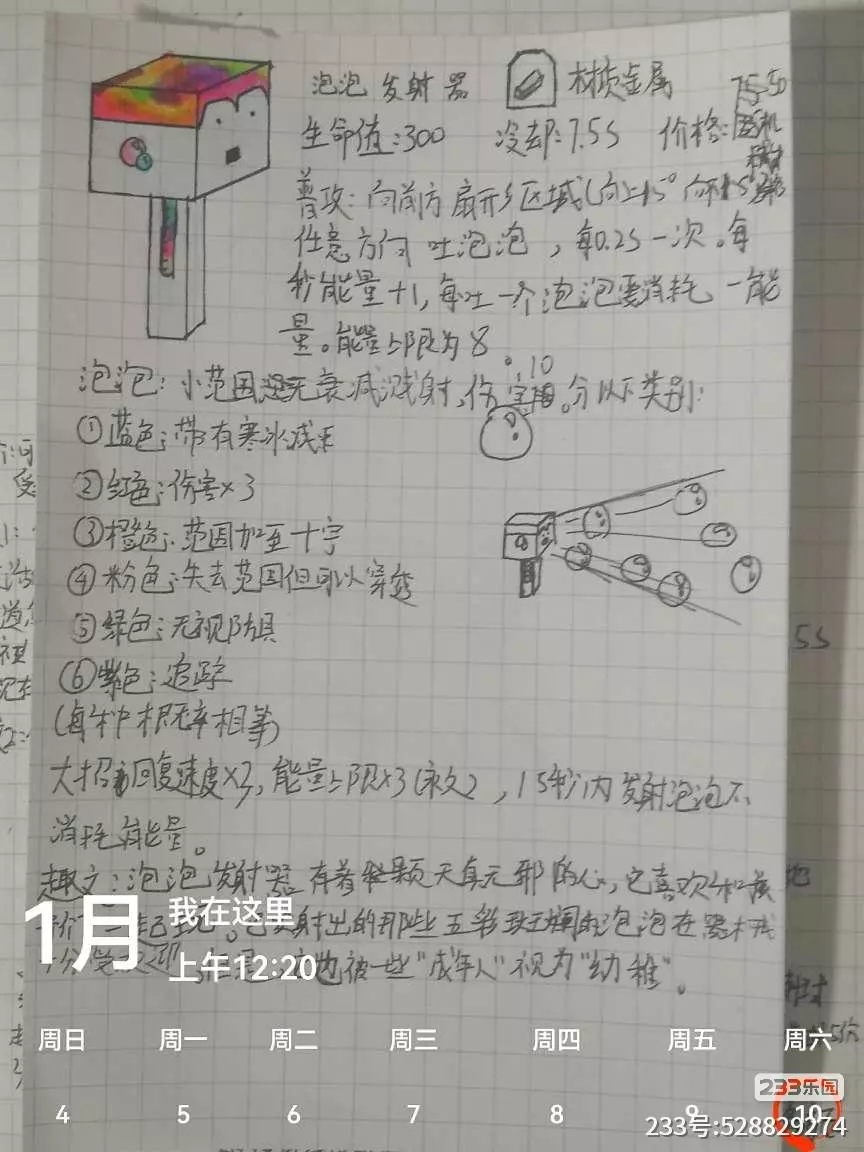 泡泡发射器 材质金属
生命值:300 冷却:7.5S 价格:
普攻:向前方扇形区域(向上15° 向下15°
任意方向吐泡泡,每0.2S一次。每
秒能量+1,每吐一个泡泡要消耗一能
量。能量上限为8。
泡泡:小范围无衰减溅射,伤害10。分以下类别:
①蓝色:带有寒冰减速
②红色:伤害×3
③橙色:范围加至十字
④粉色:失去范围但可以穿透
⑤绿色:无视防具
⑥紫色:追踪
(每种概率相等)
大招:回复速度×3,能量上限×3(永久),15秒内发射泡泡不
消耗能量。
趣文:泡泡发射器有着一颗天真无邪的心,它喜欢和其
射出的那些五彩斑斓的泡泡在器械
也被一些"成年人"视为"幼稚"。
1月
我在这里
上午12:20
周日 周一 周二 周三 周四 周五 周六
4 5 6 7 8 9 10
233乐园
233号:528829274